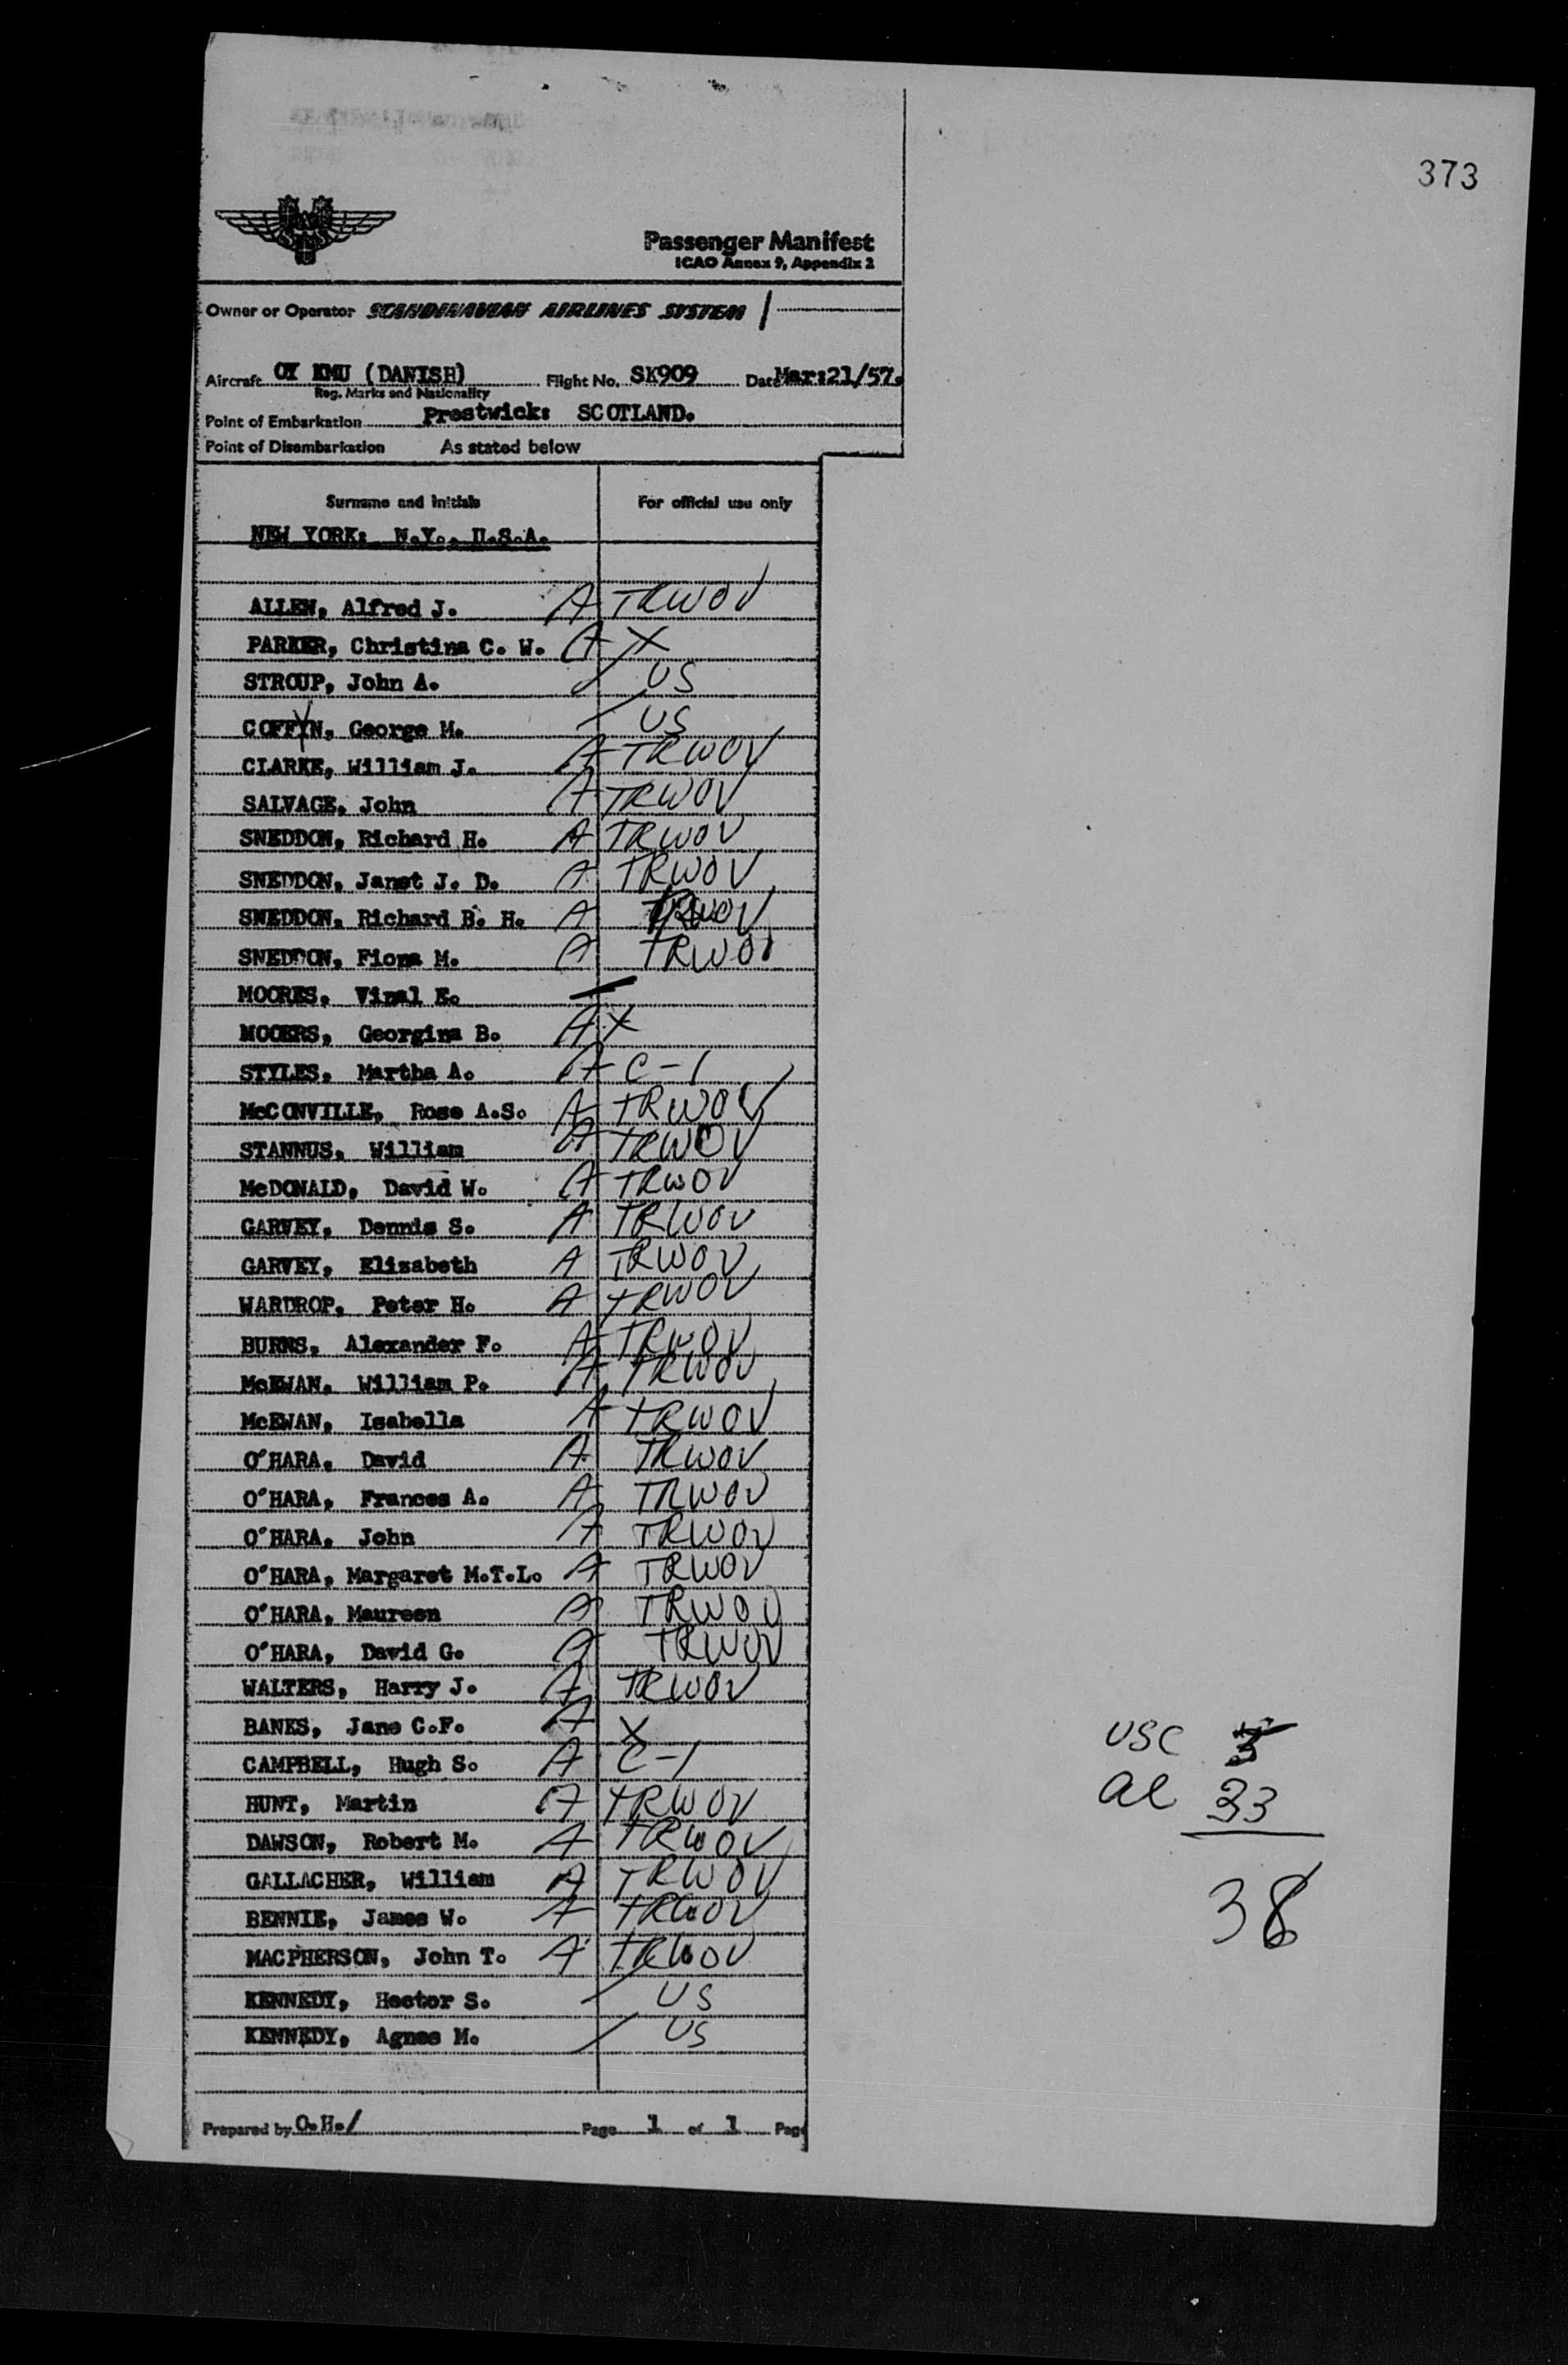 373
Passenger Manifest
ICAO Annex 9, Appendix 2
Owner or Operator SCANDINAVIAN AIRLINES SYSTEM
Aircraft OY KMU (DANISH) Flight No. SK909 Date Mar:21/57.
Reg. Marks and Nationality
Point of Embarkation Prestwick: SCOTLAND.
Point of Disembarkation As stated below
Surname and Initials For official use only
NEW YORK: N.Y., U.S.A.
ALLEN, Alfred J. A TRWOV
PARKER, Christina C. W. A X
STROUP, John A. US
COFFYN, George M. US
CLARKE, William J. A TRWOV
SALVAGE, John A TRWOV
SNEDDON, Richard H. A TRWOV
SNEDDON, Janet J. D. A TRWOV
SNEDDON, Richard B. H. A TRWOV
SNEDDON, Fiona M. A TRWOV
MOORES, Vinal E.
MOOERS, Georgina B. A X
STYLES, Martha A. A C-1
McCONVILLE, Rose A.S. A TRWOV
STANNUS, William A TRWOV
McDONALD, David W. A TRWOV
GARVEY, Dennis S. A TRWOV
GARVEY, Elizabeth A TRWOV
WARDROP, Peter H. A TRWOV
BURNS, Alexander F. A TRWOV
McEWAN, William P. A TRWOV
McEWAN, Isabella A TRWOV
O'HARA, David A TRWOV
O'HARA, Frances A. A TRWOV
O'HARA, John A TRWOV
O'HARA, Margaret M.T.L. A TRWOV
O'HARA, Maureen A TRWOV
O'HARA, David G. A TRWOV
WALTERS, Harry J. A TRWOV
BANKS, Jane C.F. A X
CAMPBELL, Hugh S. A C-1
HUNT, Martin A TRWOV
DAWSON, Robert M. A TRWOV
GALLACHER, William A TRWOV
BENNIE, James W. A TRWOV
MACPHERSON, John T. A TRWOV
KENNEDY, Hector S. US
KENNEDY, Agnes M. US
Prepared by O.H./ Page 1 of 1 Page
USC 5
al 33
38